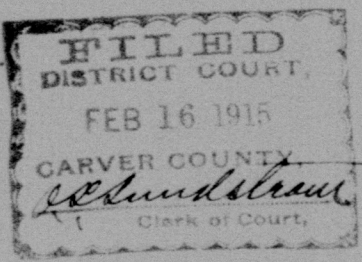 FILED
DISTRICT COURT,
FEB 16 1915
CARVER COUNTY
Sundstrom
Clerk of Court,